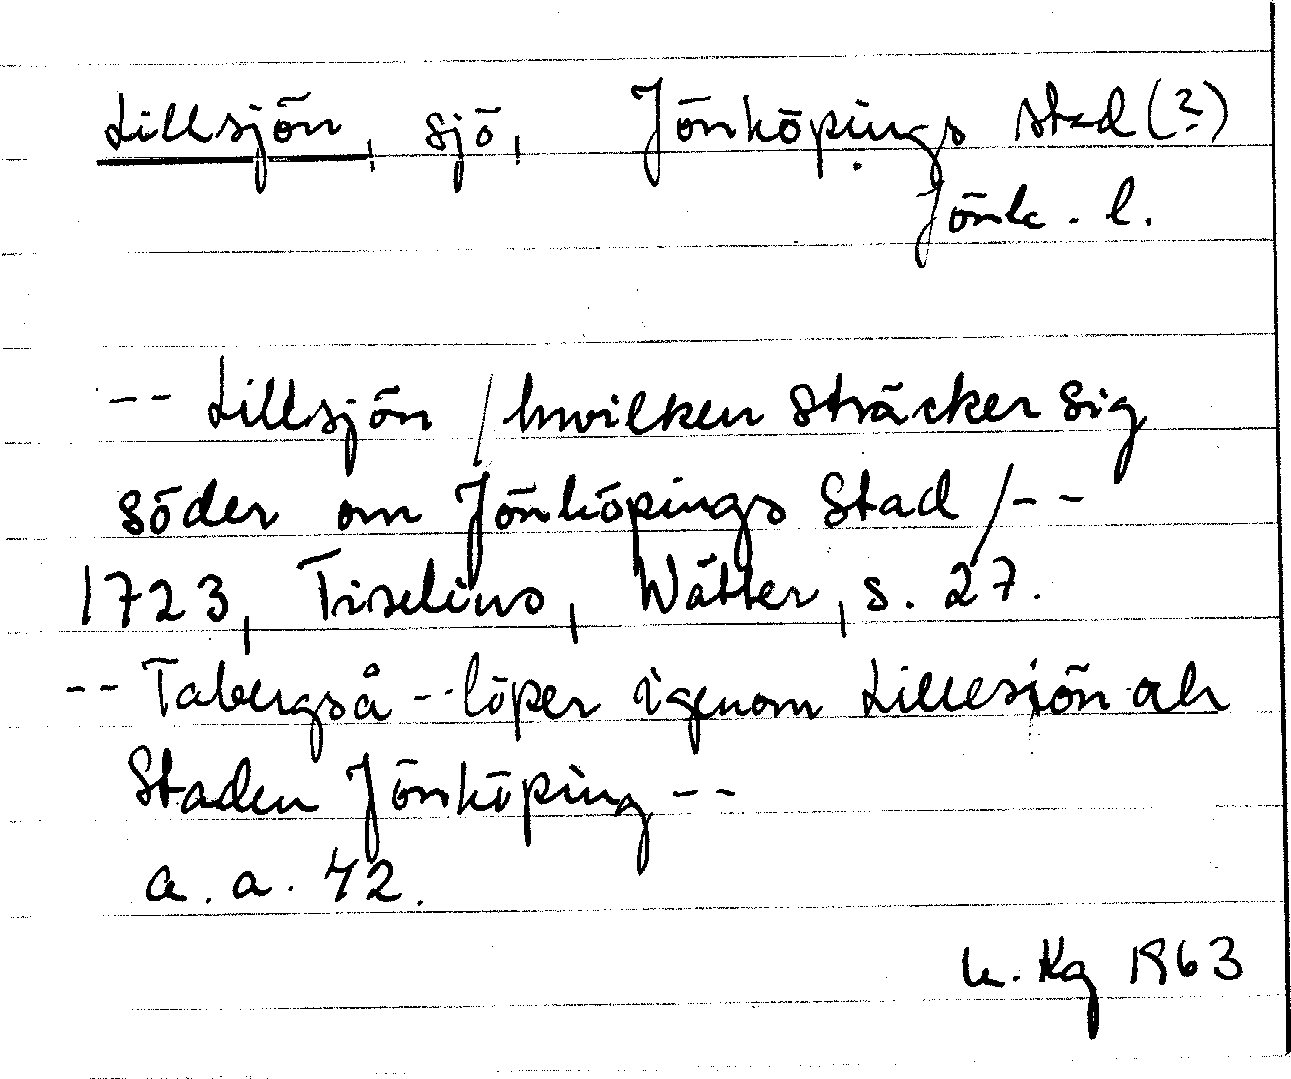 Lillsjön, sjö, Jönköpings stad (?)
Jönk. l.
-- Lillsjön / hwilken sträcker sig
söder om Jönköpings Stad /--
1723, Tiselius, Wätter, s. 27.
-- Tabergså -- löper igenom Lillesjön och
Staden Jönköping --
a. a. 42.
Kg 1963